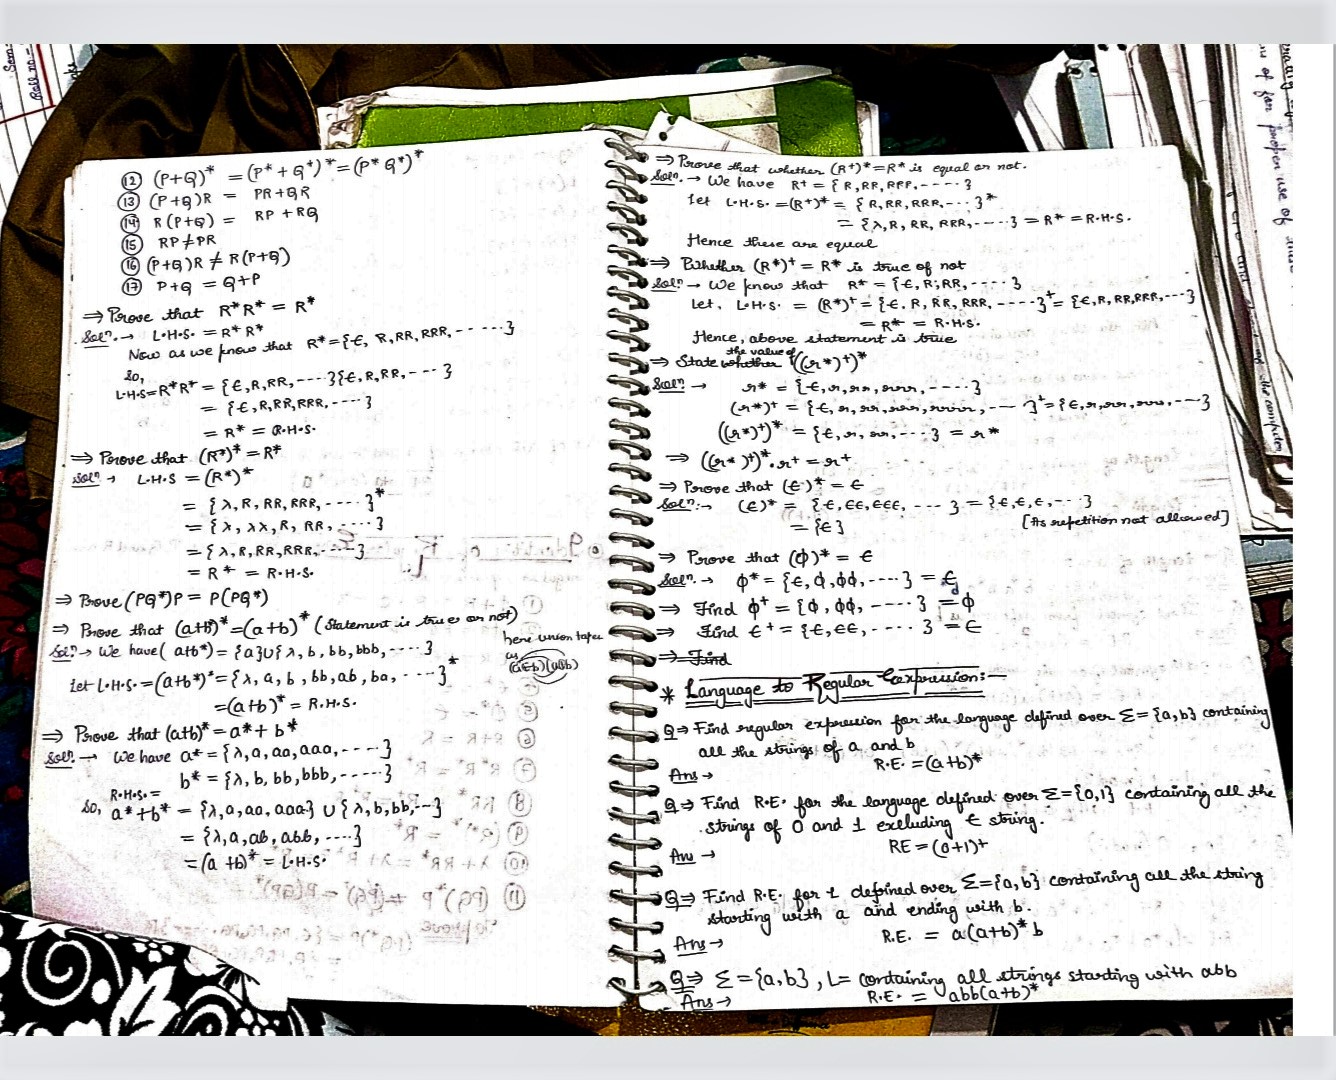 ⑫ (P+Q)* = (P* + Q*)* = (P* Q*)*
⑬ (P+Q)R = PR+QR
⑭ R(P+Q) = RP + RQ
⑮ RP ≠ PR
⑯ (P+Q)R ≠ R(P+Q)
⑰ P+Q = Q+P
⇒ Prove that R*R* = R*
Solⁿ. → L.H.S. = R* R*
Now as we know that R* = {ϵ, R, RR, RRR, - - - - -}
So,
L.H.S = R*R* = {ϵ, R, RR, - - - -}{ϵ, R, RR, - - -}
= {ϵ, R, RR, RRR, - - - -}
= R* = R.H.S.
⇒ Prove that (R*)* = R*
Solⁿ → L.H.S = (R*)*
= {λ, R, RR, RRR, - - - -}*
= {λ, λλ, R, RR, - - - -}
= {λ, R, RR, RRR, - - - -}
= R* = R.H.S.
⇒ Prove (PQ*)P = P(PQ*)
⇒ Prove that (a+b*)* = (a+b)* (Statement is true or not)
Solⁿ → We have (a+b*) = {a}∪{λ, b, bb, bbb, - - - -}
here union taken
as
Let L.H.S. = (a+b*)* = {λ, a, b, bb, ab, ba, - - - -}*
= (a+b)* = R.H.S.
⇒ Prove that (a+b)* = a* + b*
Solⁿ → We have a* = {λ, a, aa, aaa, - - - -}
b* = {λ, b, bb, bbb, - - - - -}
R.H.S. =
So, a* + b* = {λ, a, aa, aaa} ∪ {λ, b, bb, --}
= {λ, a, ab, abb, ....}
= (a+b)* = L.H.S.
⇒ Prove that whether (R⁺)* = R* is equal or not.
Solⁿ. → We have R⁺ = {R, RR, RRR, - - - -}
Let L.H.S. = (R⁺)* = {R, RR, RRR, - - -}*
= {λ, R, RR, RRR, - - - -} = R* = R.H.S.
Hence these are equal
⇒ Whether (R*)⁺ = R* is true of not
Solⁿ → We know that R* = {ϵ, R, RR, - - - - -}
Let, L.H.S. = (R*)⁺ = {ϵ, R, RR, RRR, - - - - -}⁺ = {ϵ, R, RR, RRR, - - -}
= R* = R.H.S.
Hence, above statement is true
⇒ State whether the value of ((r*)⁺)*
Solⁿ → r* = {ϵ, r, rr, rrr, - - - - -}
(r*)⁺ = {ϵ, r, rr, rrr, rrrr, - - - -}⁺ = {ϵ, r, rr, rrr, - - -}
((r*)⁺)* = {ϵ, r, rr, - - - -} = r*
⇒ ((r*)⁺)*.r⁺ = r⁺
⇒ Prove that (ϵ)* = ϵ
Solⁿ: → (ϵ)* = {ϵ, ϵϵ, ϵϵϵ, - - - -} = {ϵ, ϵ, ϵ, - - -}
= {ϵ} [As repetition not allowed]
⇒ Prove that (ϕ)* = ϵ
Solⁿ. → ϕ* = {ϵ, ϕ, ϕϕ, - - - -} = ϵ
⇒ Find ϕ⁺ = {ϕ, ϕϕ, - - - - -} = ϕ
⇒ Find ϵ⁺ = {ϵ, ϵϵ, - - - - -} = ϵ
⇒ Find
* Language to Regular Expression:-
Q ⇒ Find regular expression for the language defined over Σ={a,b} containing
all the strings of a and b
Ans → R.E. = (a+b)*
Q ⇒ Find R.E. for the language defined over Σ={0,1} containing all the
strings of 0 and 1 excluding ϵ string.
Ans → RE = (0+1)⁺
Q ⇒ Find R.E. for L defined over Σ={a,b} containing all the string
starting with a and ending with b.
Ans → R.E. = a(a+b)*b
Q ⇒ Σ={a,b}, L= containing all strings starting with abb
Ans → R.E. = abb(a+b)*